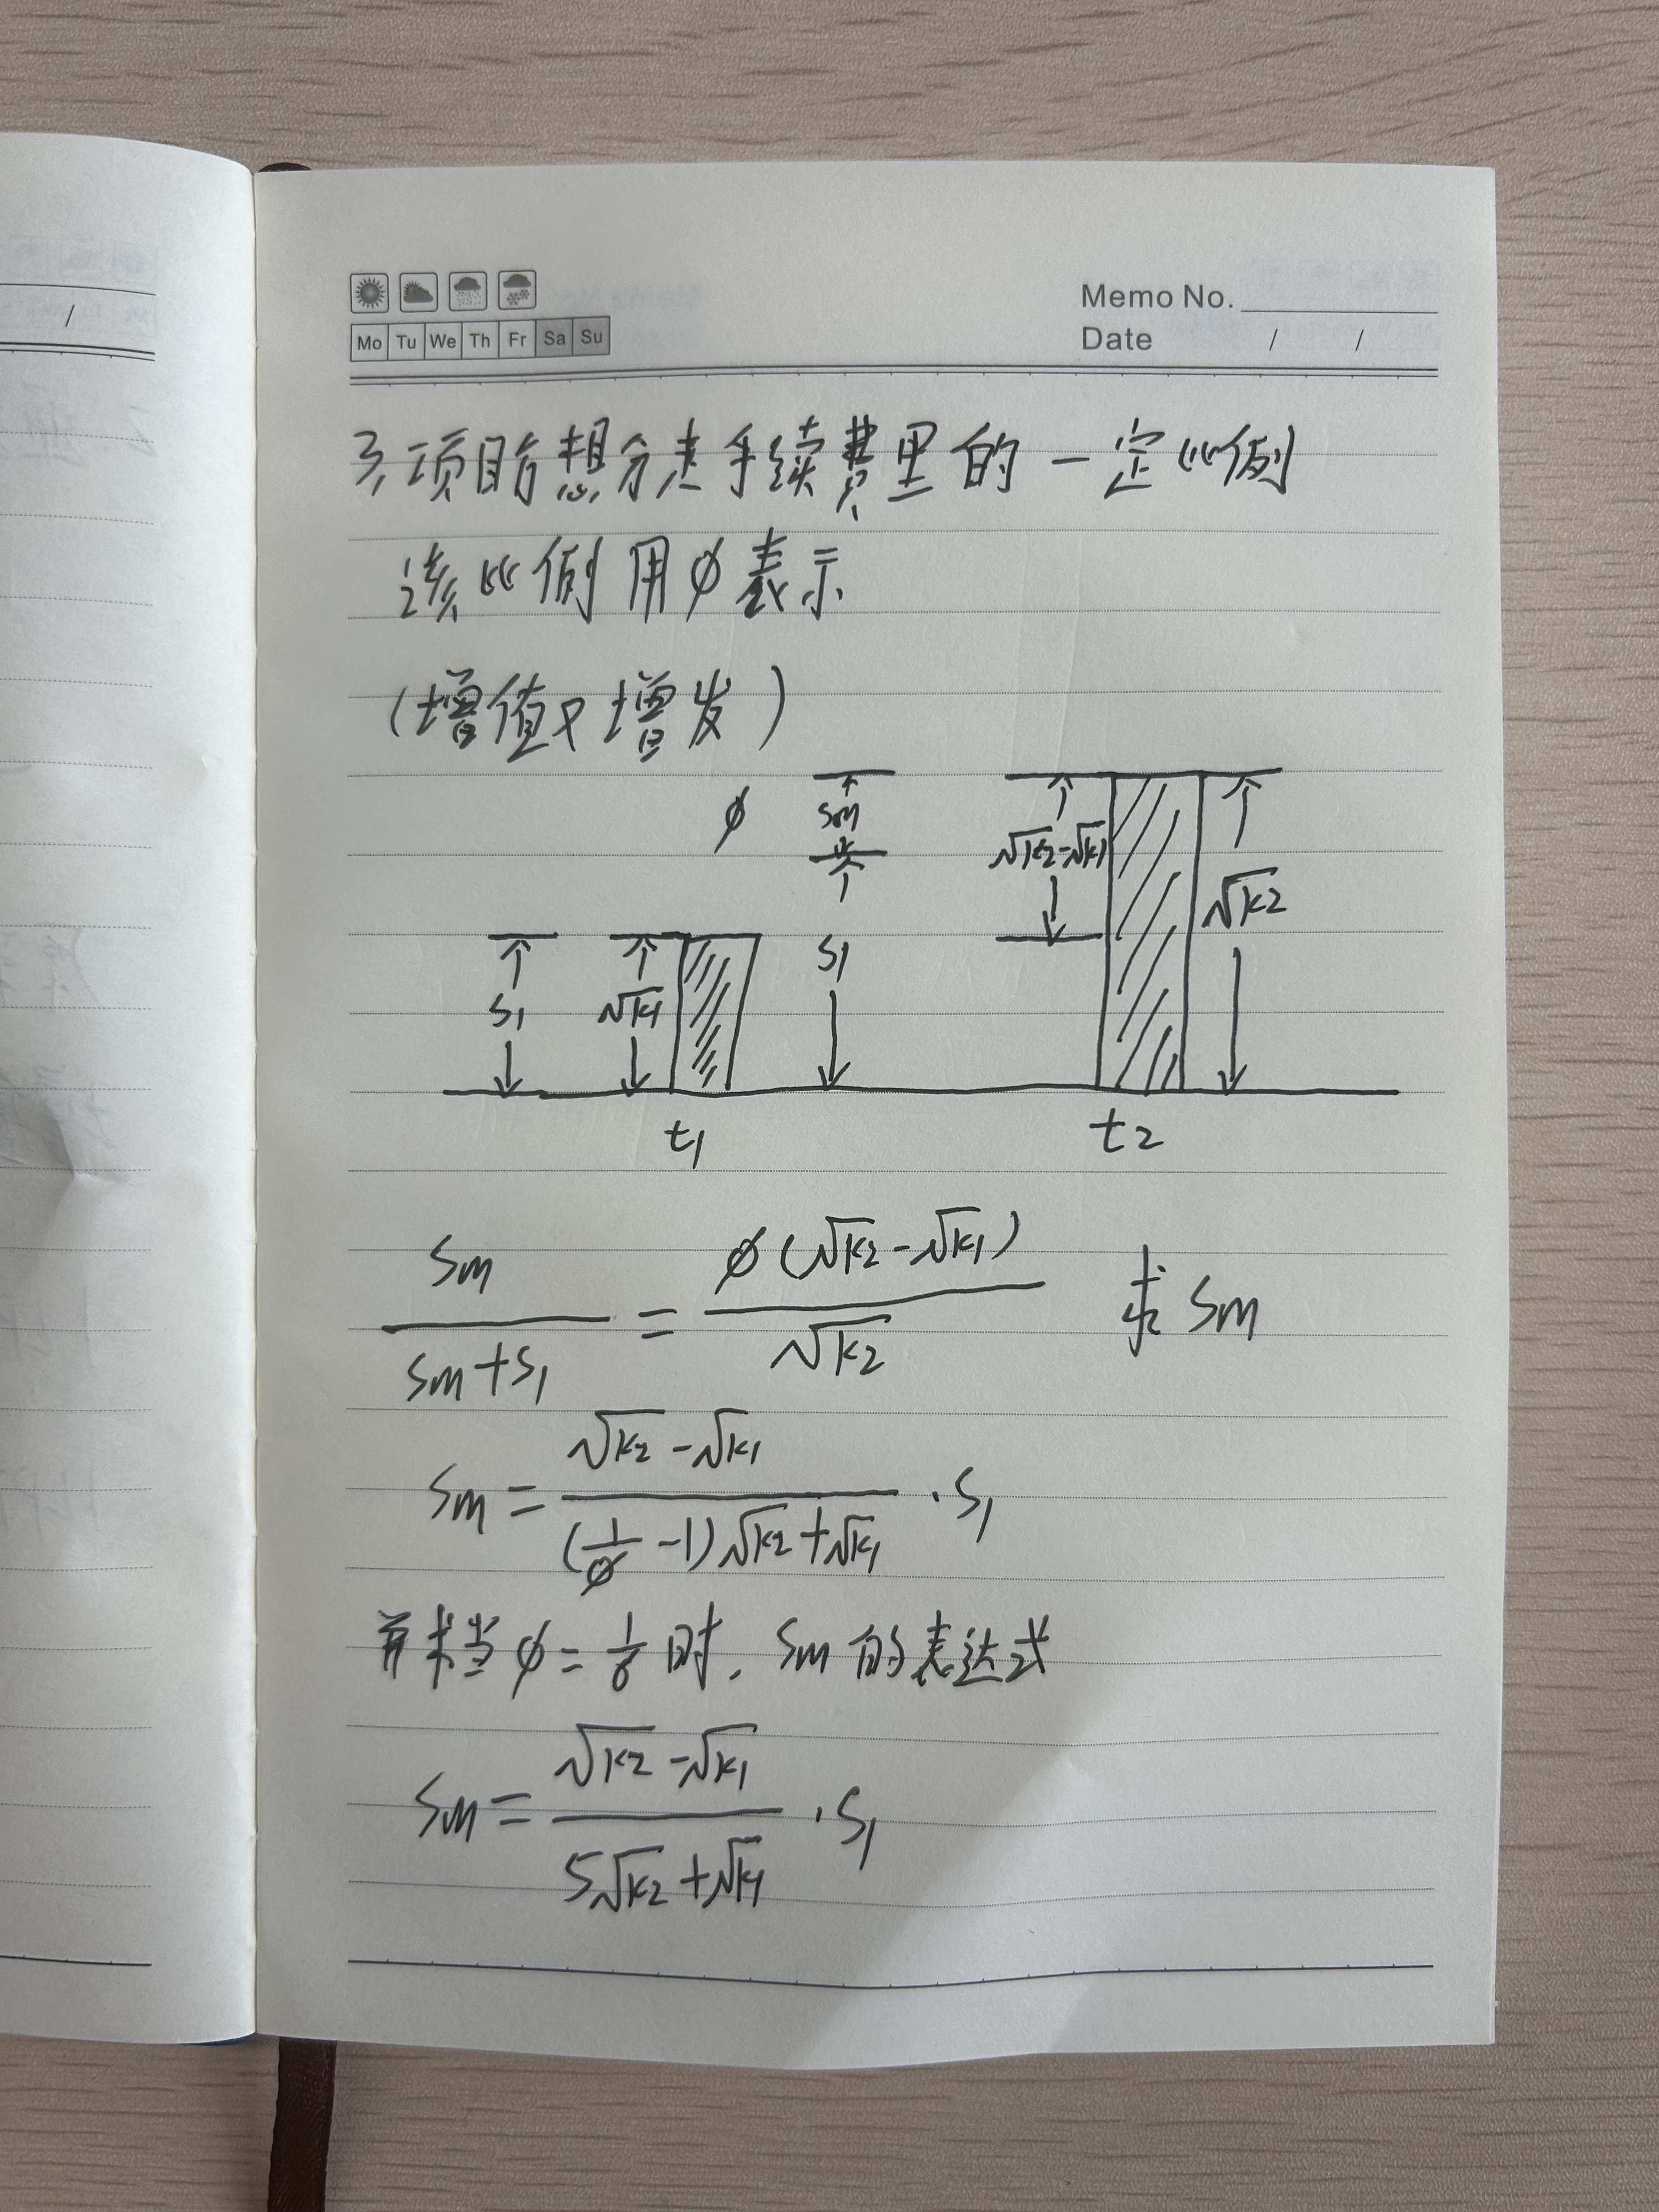 Memo No.
Mo Tu We Th Fr Sa Su
Date / /
/
3,项目方想分走手续费里的一定比例
该比例用ϕ表示
(增值又增发)
ϕ Sm √k2-√k1 √k2
S1 √k1 S1
t1 t2
Sm/(Sm+S1) = ϕ(√k2-√k1)/√k2 求Sm
Sm = (√k2-√k1)/((1/ϕ-1)√k2+√k1) · S1
并求当ϕ=1/6时, Sm的表达式
Sm = (√k2-√k1)/(5√k2+√k1) · S1